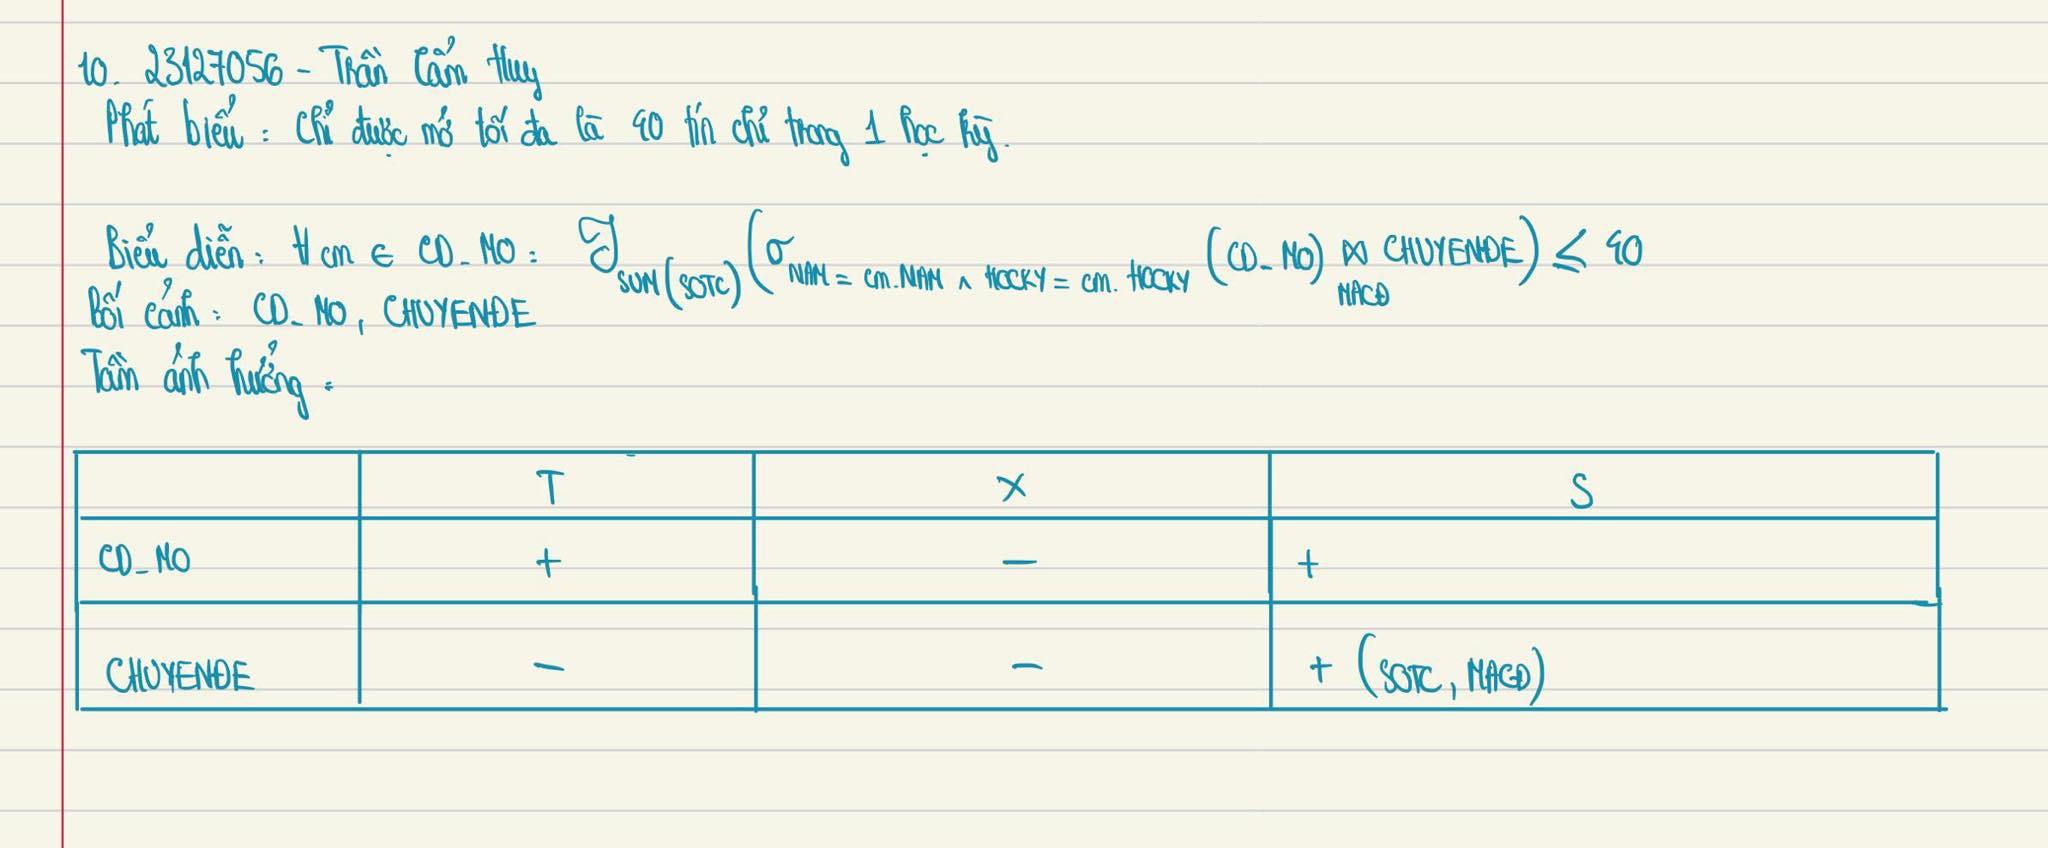 10. 23127056 - Trần Cẩm Huy
Phát biểu: Chỉ được mở tối đa là 40 tín chỉ trong 1 học kỳ.
Biểu diễn: ∀ cm ∈ CD_MO: ℑ SUM(SOTC) (σ NAM = cm.NAM ∧ HOCKY = cm.HOCKY (CD_MO) ⋈ MACD CHUYENDE) ≤ 40
Bối cảnh: CD_MO, CHUYENDE
Tầm ảnh hưởng:
T X S
CD_MO + − +
CHUYENDE − − + (SOTC, MACD)